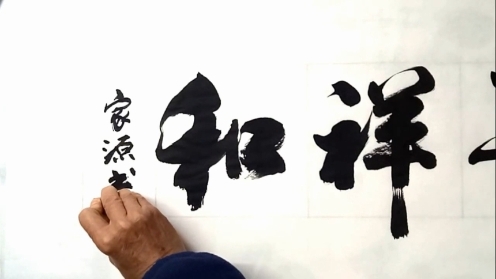 祥和
家源书